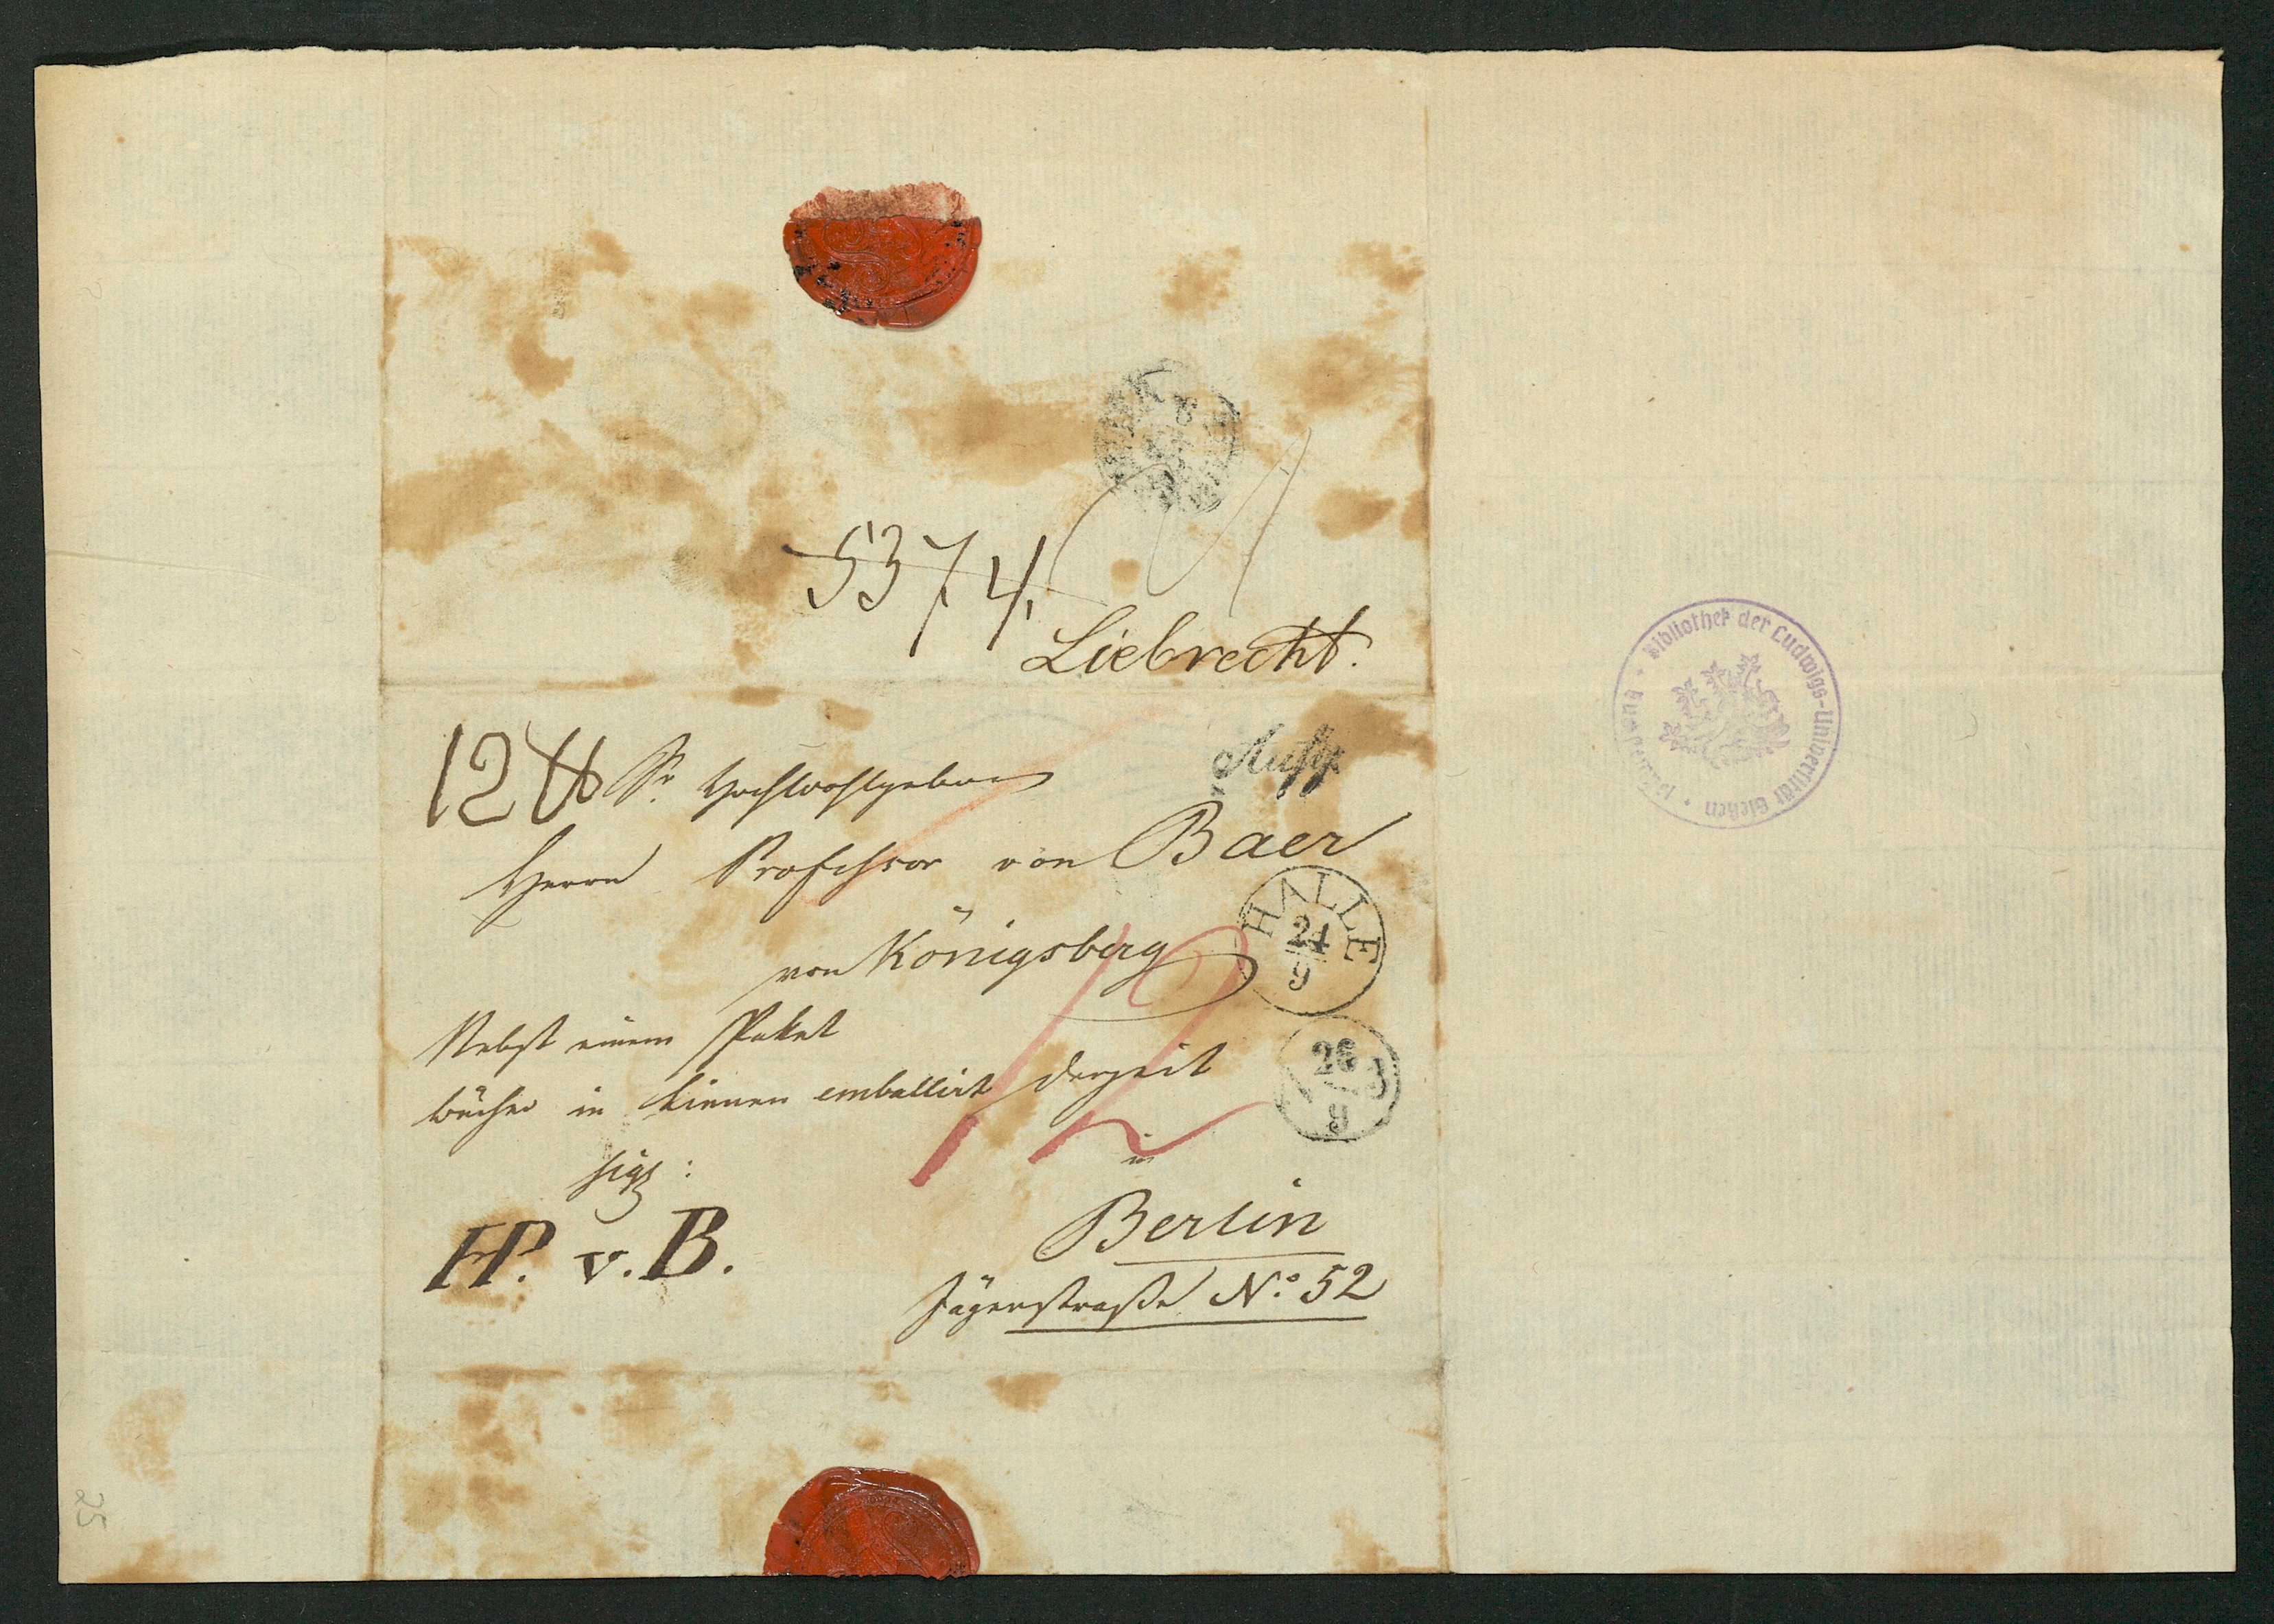 5374.
Liebrecht.
12 ℔
Sr Hochwohlgeboren
Herrn Professor von Baer
von Königsberg
HALLE
24
9
Nebst einem Paket
Bücher in Linnen emballirt derzeit
26
9
sigz:
in
H. P. v. B.
Berlin
Jägerstraße No. 52
12
Bibliothek der Ludwigs-Universität Gießen
25